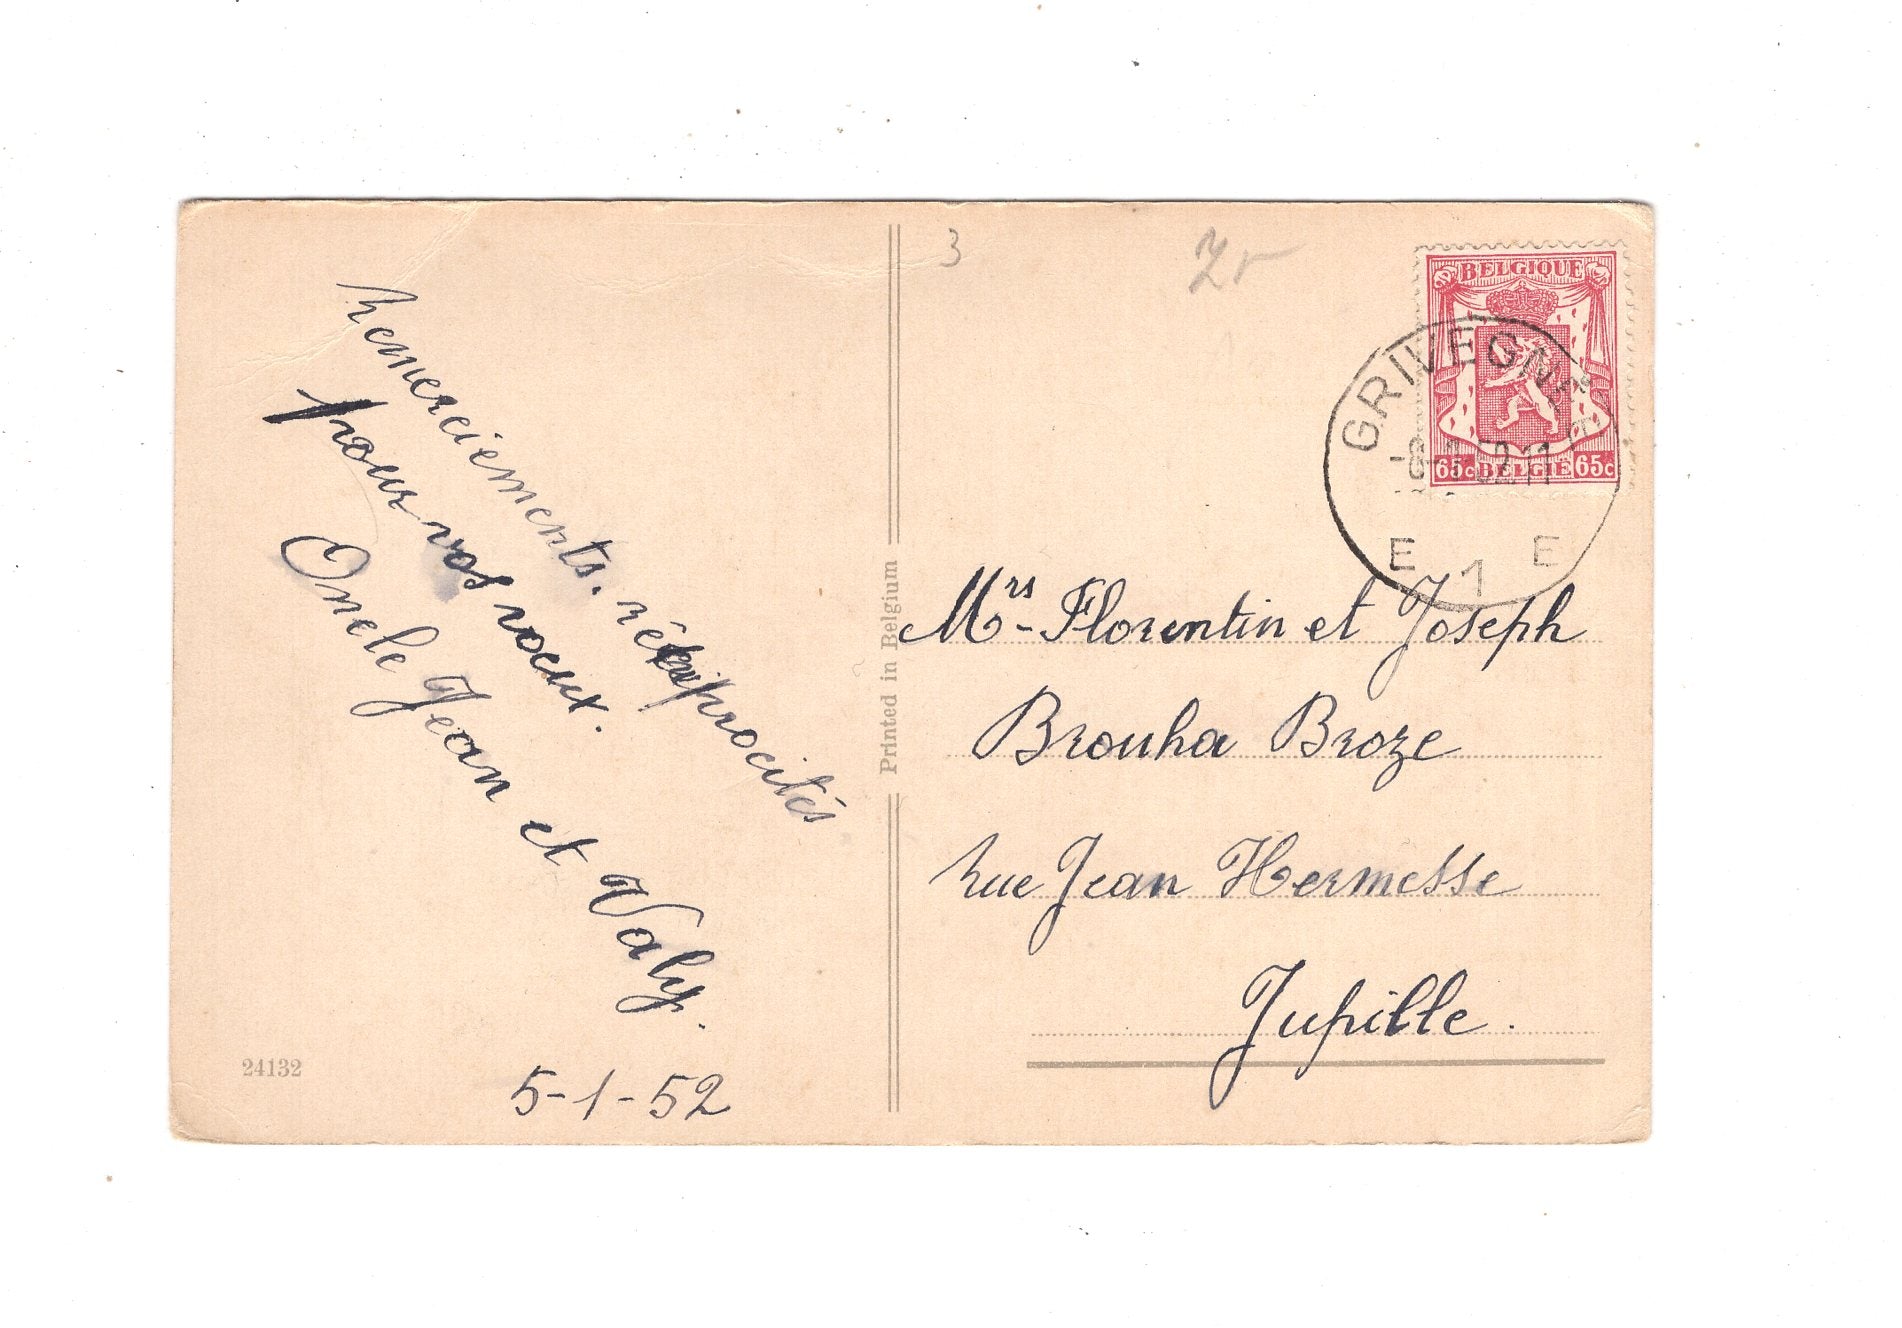 remerciements. réciprocités
pour vos voeux.
Oncle Jean et Valy.
5-1-52
24132
Printed in Belgium
3
BELGIQUE
65c BELGIË 65c
GRIVEGNÉE
E 1 E
Mrs Florentin et Joseph
Brouha Broze
rue Jean Hermesse
Jupille.